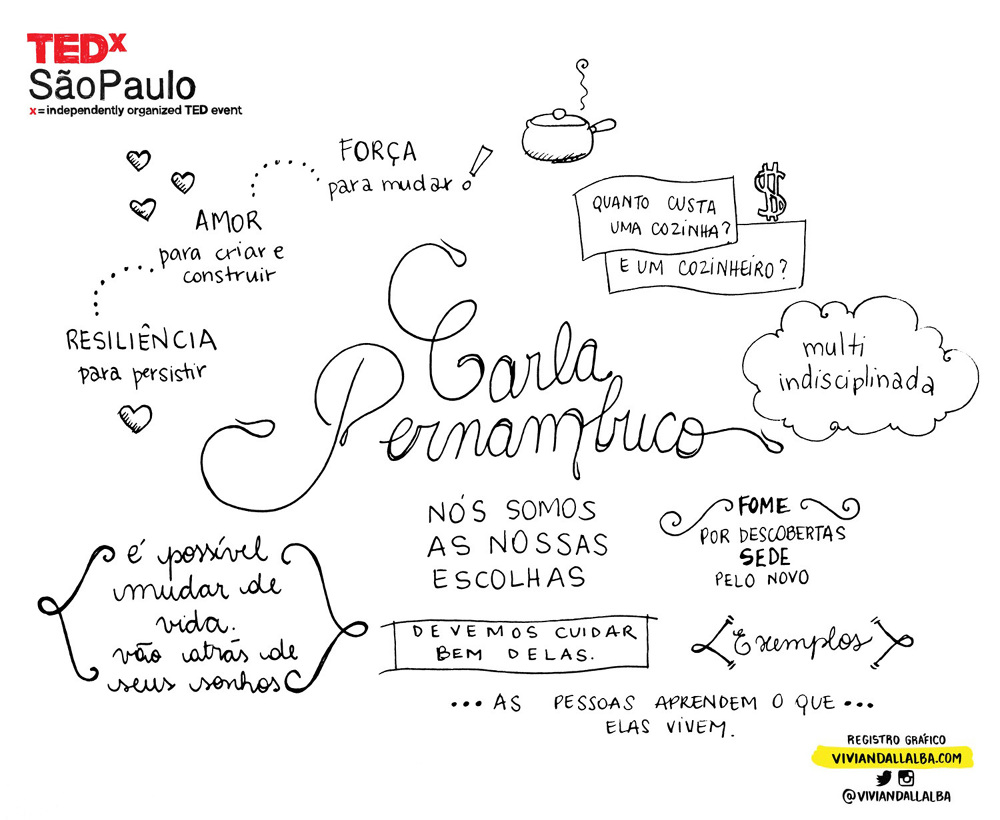 TEDx
SãoPaulo
x=independently organized TED event
FORÇA
para mudar!
AMOR
para criar e
construir
RESILIÊNCIA
para persistir
$
QUANTO CUSTA
UMA COZINHA?
E UM COZINHEIRO?
multi
indisciplinada
Carla
Pernambuco
NÓS SOMOS
AS NOSSAS
ESCOLHAS
DEVEMOS CUIDAR
BEM DELAS.
FOME
POR DESCOBERTAS
SEDE
PELO NOVO
é possível
mudar de
vida.
vão atrás de
seus sonhos
Exemplos
... AS PESSOAS APRENDEM O QUE ...
ELAS VIVEM.
REGISTRO GRÁFICO
VIVIANDALLALBA.COM
@VIVIANDALLALBA